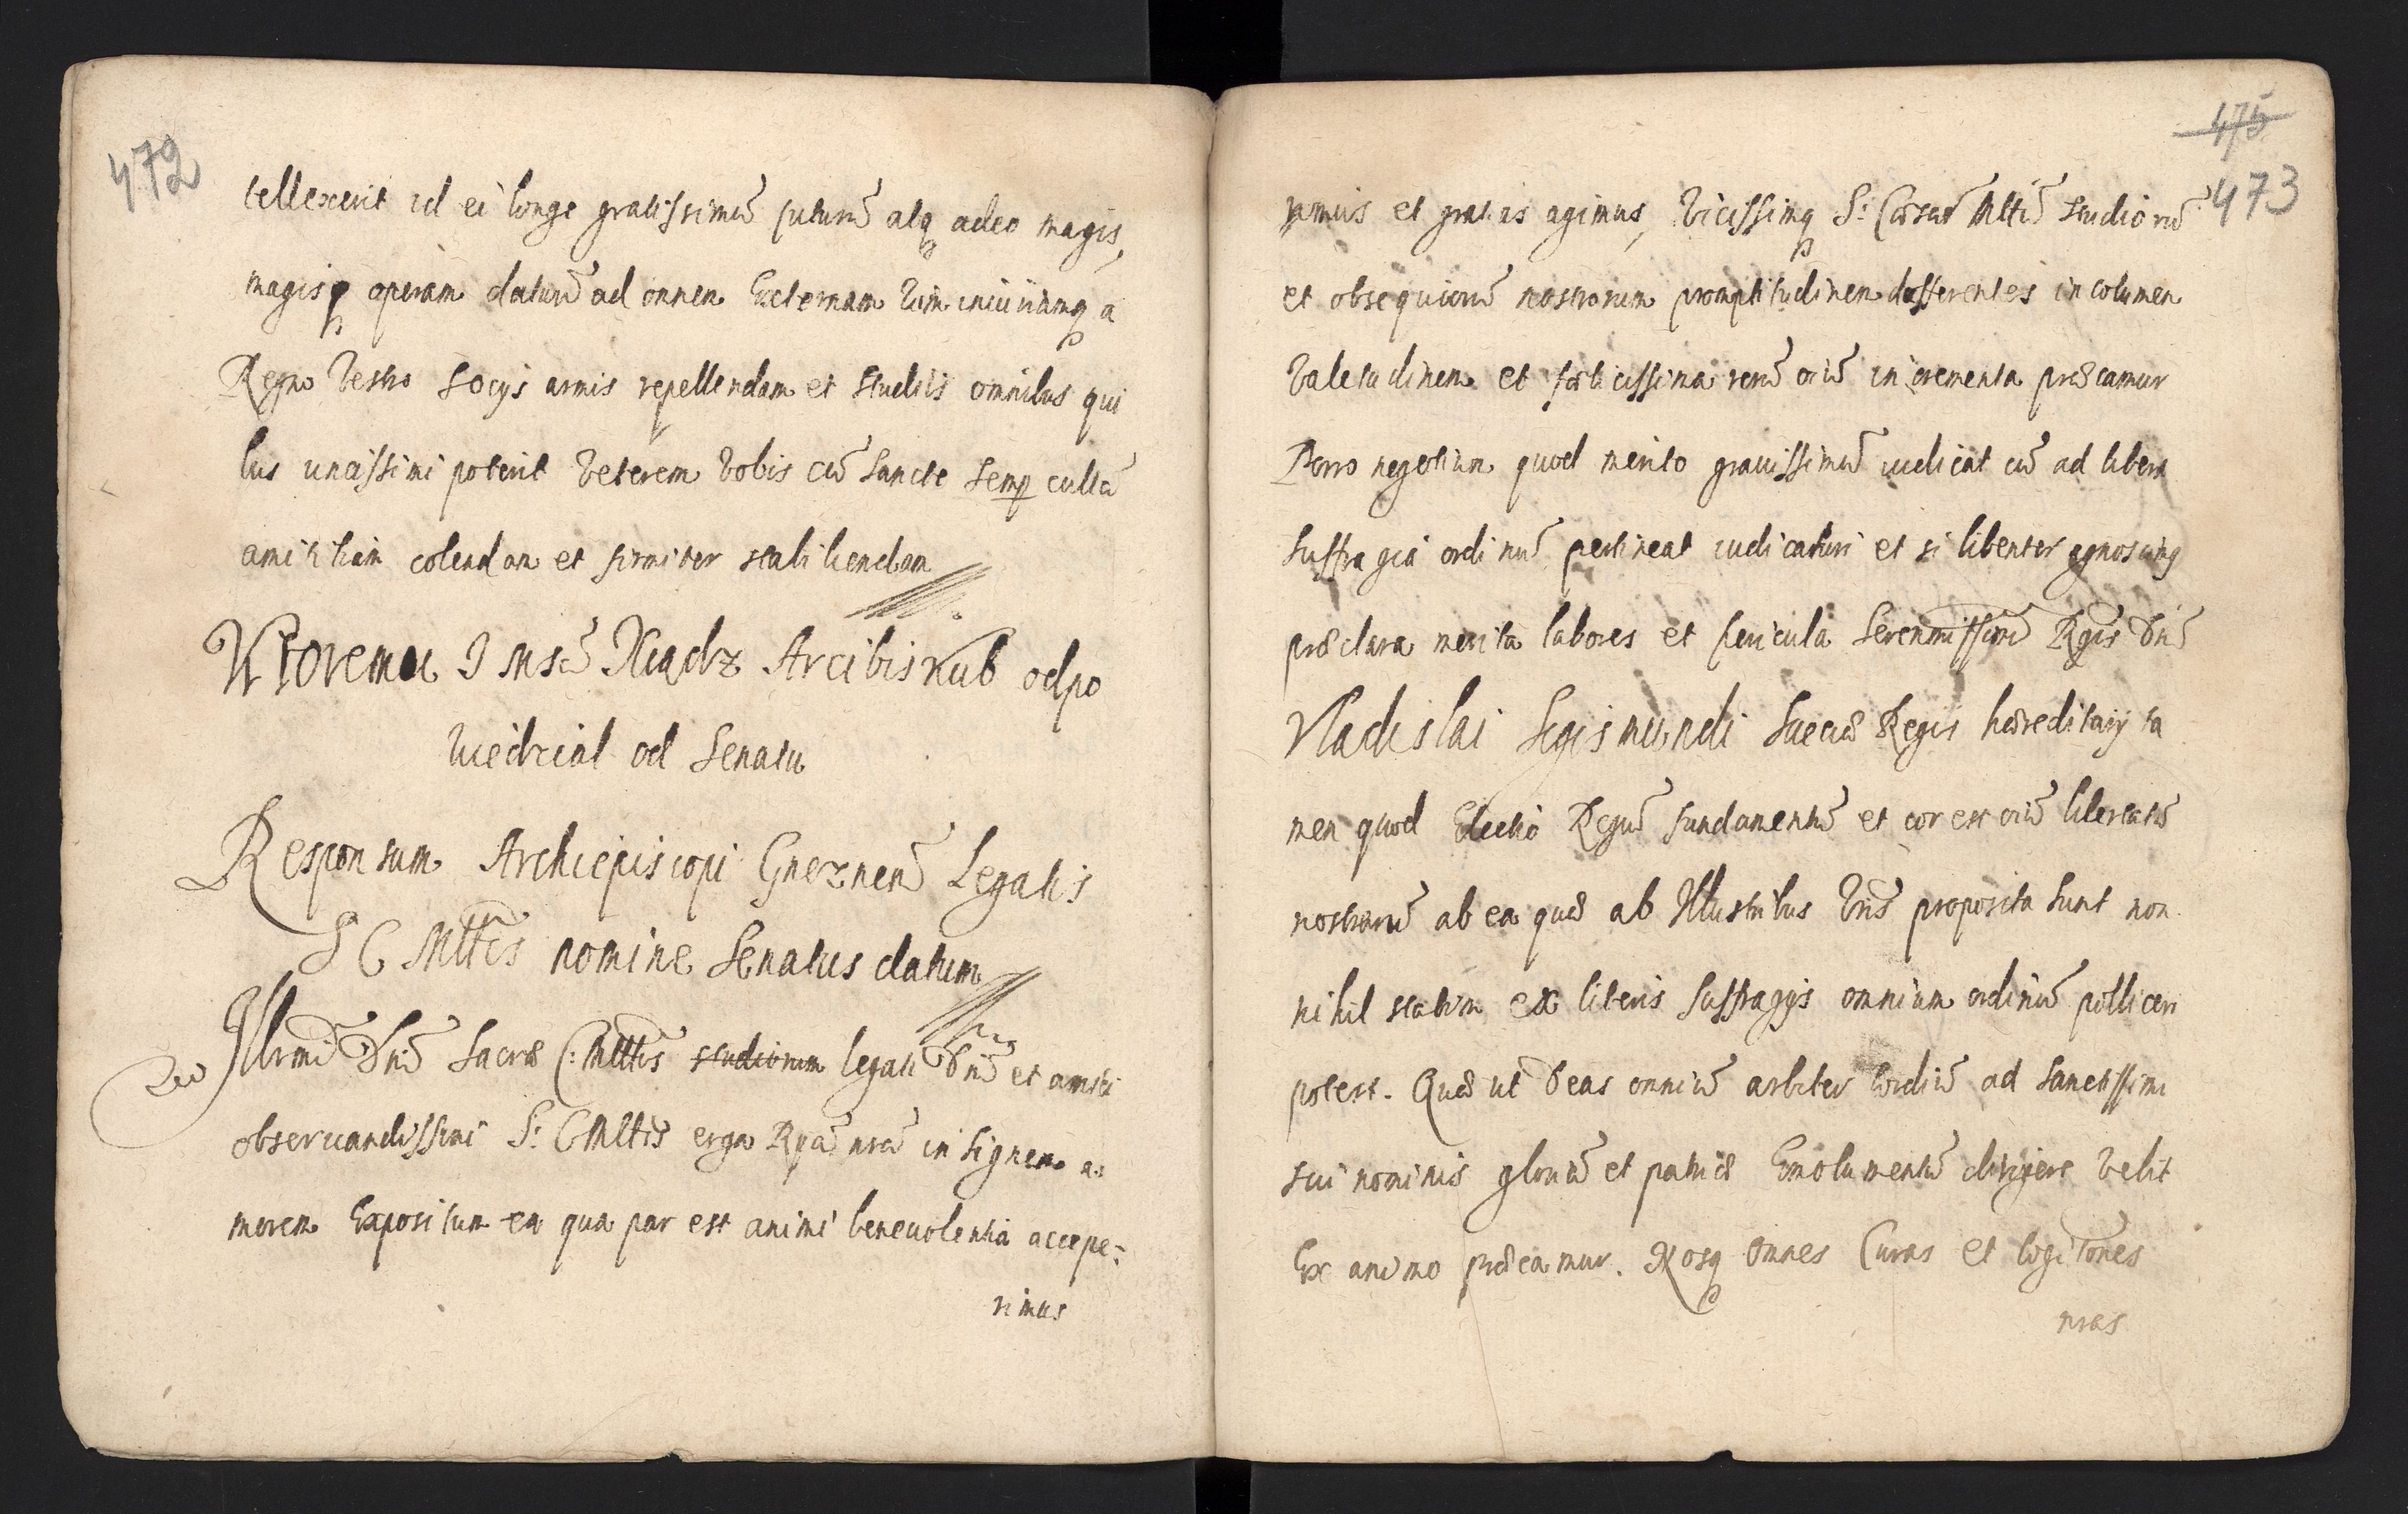 472
tellexerit id ei longe gratissimū futurū atq adeo magis,
magisq operam daturū ad omnem Externam vim iniuriamq a
Regno Vestro socijs armis repellendam et studiis omnibus qui
bus unctissimi poterit Veterem Vobis cū sancte semp cultā
amicitiam colendam et firmiter stabiliendam
Ktoremu J Msc̄ Xiądz Arcibiskub odpo
wiedzial od Senatu
Responsum Archiepiscopi Gneznen̄ Legatis
S C Mttis nomine Senatus datum
Illrmi Dn̄i Sacræ C: Mttis studiorum legati Dn̄i et amici
obseruandissimi S: C Mttis erga Rpā nrā insignem a:
morem Expositum ea qua par est animi beneuolentia accepe:
rimus
475
473
rimus et gratias agimus, Vicissimq S: Cæsar Mtti studiorū
et obsequiorū nostrorum promptitudinem defferentes incolumem
Valetudinem et fœlicissima rerū oiū incrementa præcamur
Porro negotium quod merito grauissimū iudicat cū ad libera
suffragia ordinū pertineat iudicaturi et si libenter agnoscimq
præclara merita labores et pericula Serenmissimi Rgis Dn̄i
Vladislai Segismundi Sueciæ Regis hæreditarij ta
men quod Electio Regū fundamentū et cor est oiū libertatū
nostrarū ab ea quæ ab Illustribus Vris proposita sunt non
nihil statim ex liberis suffragijs omnium ordinū polliceri
potest. Quæ ut Deas omniū arbiter cordiū ad sanctissimi
sui nominis gloriā et patriæ Emolumentū dirigere velit
Ex animo præcamur. Nosq omnes Curas et cogitōnes
nras